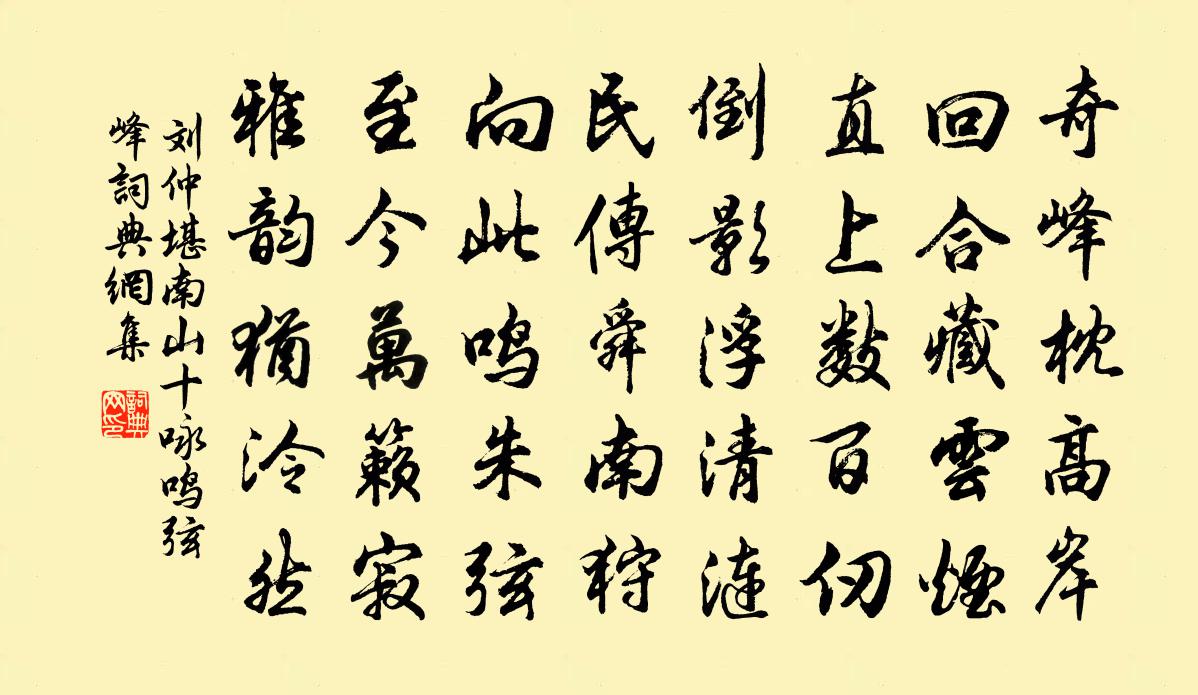 奇峰枕高岸
回合藏雲煙
直上數百仞
倒影浮清漣
民傳舜南狩
向此鳴朱弦
至今萬籟寂
雅韵猶泠然
刘仲堪南山十咏鳴弦
峰詞典網集
詞典网印